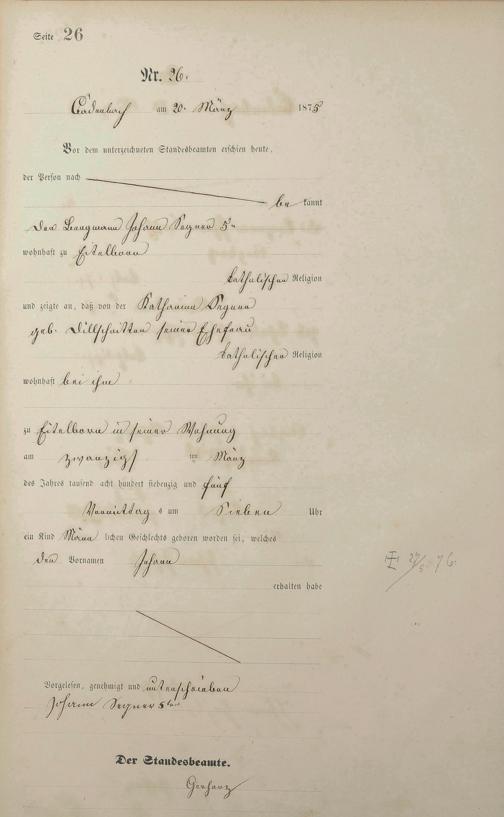 Seite 26
Nr. 26.
Cadenbach am 20. März 1875
Vor dem unterzeichneten Standesbeamten erschien heute,
der Person nach
be kannt
Der Bergmann Johann Segner 5r
wohnhaft zu Eitelborn
katholischer Religion
und zeigte an, daß von der Katharina Segner
geb. Dillschnitter seiner Ehefrau
katholischer Religion
wohnhaft bei ihm
zu Eitelborn in seiner Wohnung
am zwanzigst im März
des Jahres tausend acht hundert siebenzig und fünf
Vormittag s um Sieben Uhr
ein Kind Männ lichen Geschlechts geboren worden sei, welches
den Vornamen Johann
erhalten habe
27/5 76.
Vorgelesen, genehmigt und unterschrieben
Johann Segner 5ter
Der Standesbeamte.
Gerharz